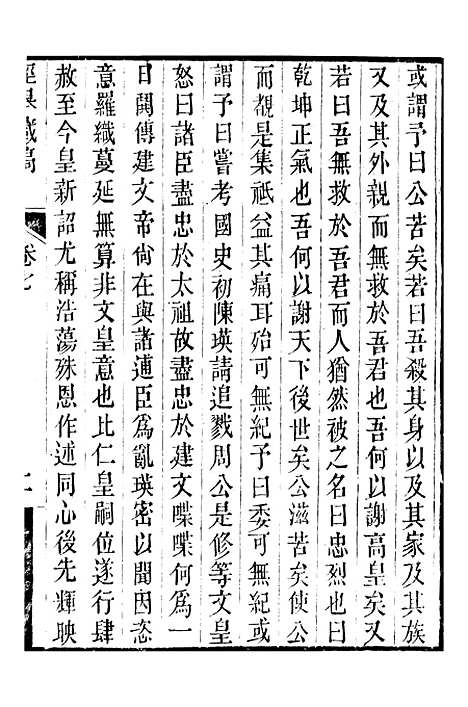 或謂予曰公苦矣若曰吾殺其身以及其家及其族
又及其外親而無救於吾君也吾何以謝高皇矣又
若曰吾無救於吾君而人猶然被之名曰忠烈也曰
乾坤正氣也吾何以謝天下後世矣公滋苦矣使公
而覩是集祇益其痛耳殆可無紀予曰委可無紀或
謂予曰嘗考國史初陳瑛請追戮周公是修等文皇
怒曰諸臣盡忠於太祖故盡忠於建文喋喋何爲一
日鬨傳建文帝尙在與諸逋臣爲亂瑛密以聞因恣
意羅織蔓延無算非文皇意也比仁皇嗣位遂行肆
赦至今皇新詔尤稱浩蕩殊恩作述同心後先輝映
藏稿
卷七
二